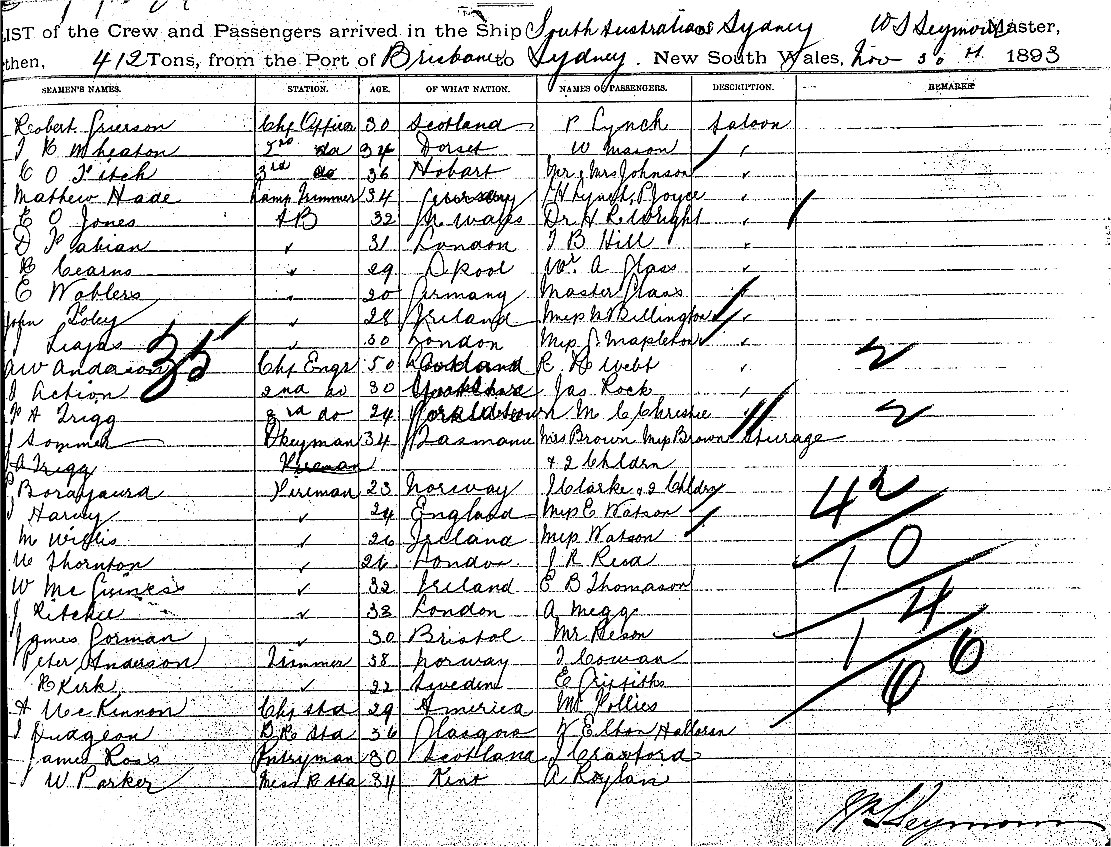 LIST of the Crew and Passengers arrived in the Ship South Australian of Sydney W S Seymour Master,
then, 412 Tons, from the Port of Brisbane to Sydney. New South Wales, Nov 30th 1893
SEAMEN'S NAMES. STATION. AGE. OF WHAT NATION. NAMES OF PASSENGERS. DESCRIPTION. REMARKS
Robert Grierson Chf Officer 30 Scotland P Lynch Saloon
Wheaton do 34 Dorset W Mason "
C O Fitch 3rd do 36 Hobart Mr & Mrs Johnson "
Mathew Hade Lamp Trimmer 34 Guernsey H Lynch, P Joyce "
E O Jones AB 32 Wales Dr H R Wright "
D Fabian " 31 London J B Hill "
R Cearns " 29 L'pool Mr A Glass "
E Wahlers " 20 Germany Master Glass "
John Foley " 28 Ireland Miss Billington "
" 30 London Miss Mapleton "
35
A W Anderson Chf Engr 50 R H Webt " 2
J Action 2nd do 30 Yorkshire Jas Rock "
F A Trigg 3rd do 24 M C Christie " 2
J Sommer Dkeyman 34 Tasmania Mrs Brown Miss Brown Sturage
A Trigg Fireman & 2 Chldrn
Fireman 23 Norway J Clarke & 2 Chldrn 42
Harvy " 24 England Miss E Watson
M Willis " 26 Ireland Miss Watson 10
Thornton " 26 London J R Reid 1
W McGuines " 32 Ireland E B Thomason
J Ritchie " 38 London A Megg 4
James Gorman " 30 Bristol Mr 1 6
Peter Anderson Trimmer 38 Norway J Cowan
R Kirk " 22 Sweden E Griffiths 6
A McKinnon Chf Std 29 America Pollies
J Hudgeon Std 36 Glasgow Elton Halloran
James Ross Pntryman 30 Scotland J Crawford
W Parker Mess R Std 34 Kent A Roylan
W S Seymour